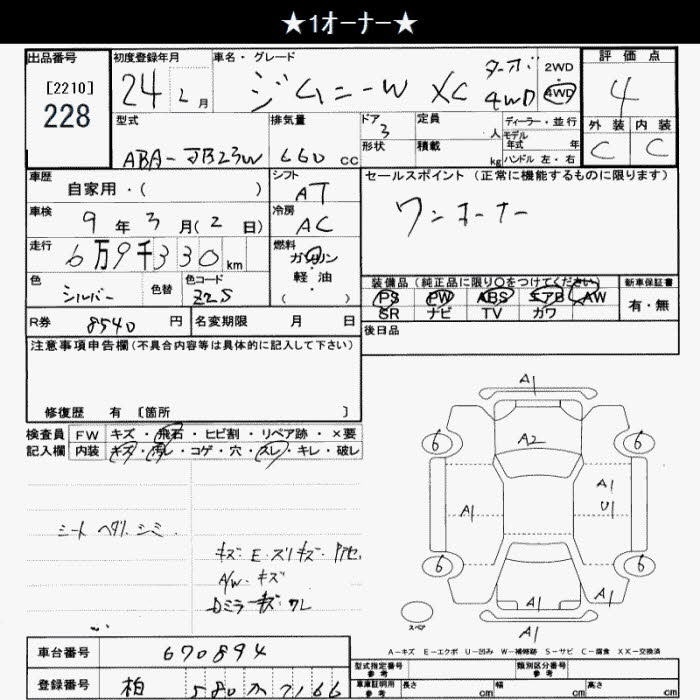 ★1オーナー★
出品番号 初度登録年月 車名・グレード 評価点
[2210]
228
24 2月 ジムニーW XC ターボ 4WD 2WD・4WD 4
型式 排気量 ドア 定員 ディーラー・並行 外装 内装
3 人 モデル年式 年 C C
ABA-JB23W 660cc 形状 積載 kg ハンドル 左・右
車歴 シフト セールスポイント(正常に機能するものに限ります)
自家用・( ) AT
車検 冷房 ワンオーナー
9年3月(2日) AC
走行 燃料
6万9千330km ガソリン・軽油・( )
色 色替 色コード 装備品(純正品に限り○をつけてください) 新車保証書
シルバー Z2S PS PW ABS エアB AW 有・無
SR ナビ TV カワ
R券 8540円 名変期限 月 日 後日品
注意事項申告欄(不具合内容等は具体的に記入して下さい)
修復歴 有 [箇所 ]
検査員 FW キズ・飛石・ヒビ割・リペア跡・×要
記入欄 内装 キズ・汚レ・コゲ・穴・スレ・キレ・破レ
A1
6 A2 6
A1 A1
U1
6 6
A1 A1
A1
スペア
シート ヘタリ、シミ
キズ・E・スリキズ・
A/W・キズ
Dミラーキズ・ワレ
A-キズ E-エクボ U-凹み W-補修跡 S-サビ C-腐食 XX-交換済
車台番号 670894
型式指定番号 参考 類別区分番号 参考
登録番号 柏 580 カ 7166
車庫証明用 参考 長さ cm 幅 cm 高さ cm